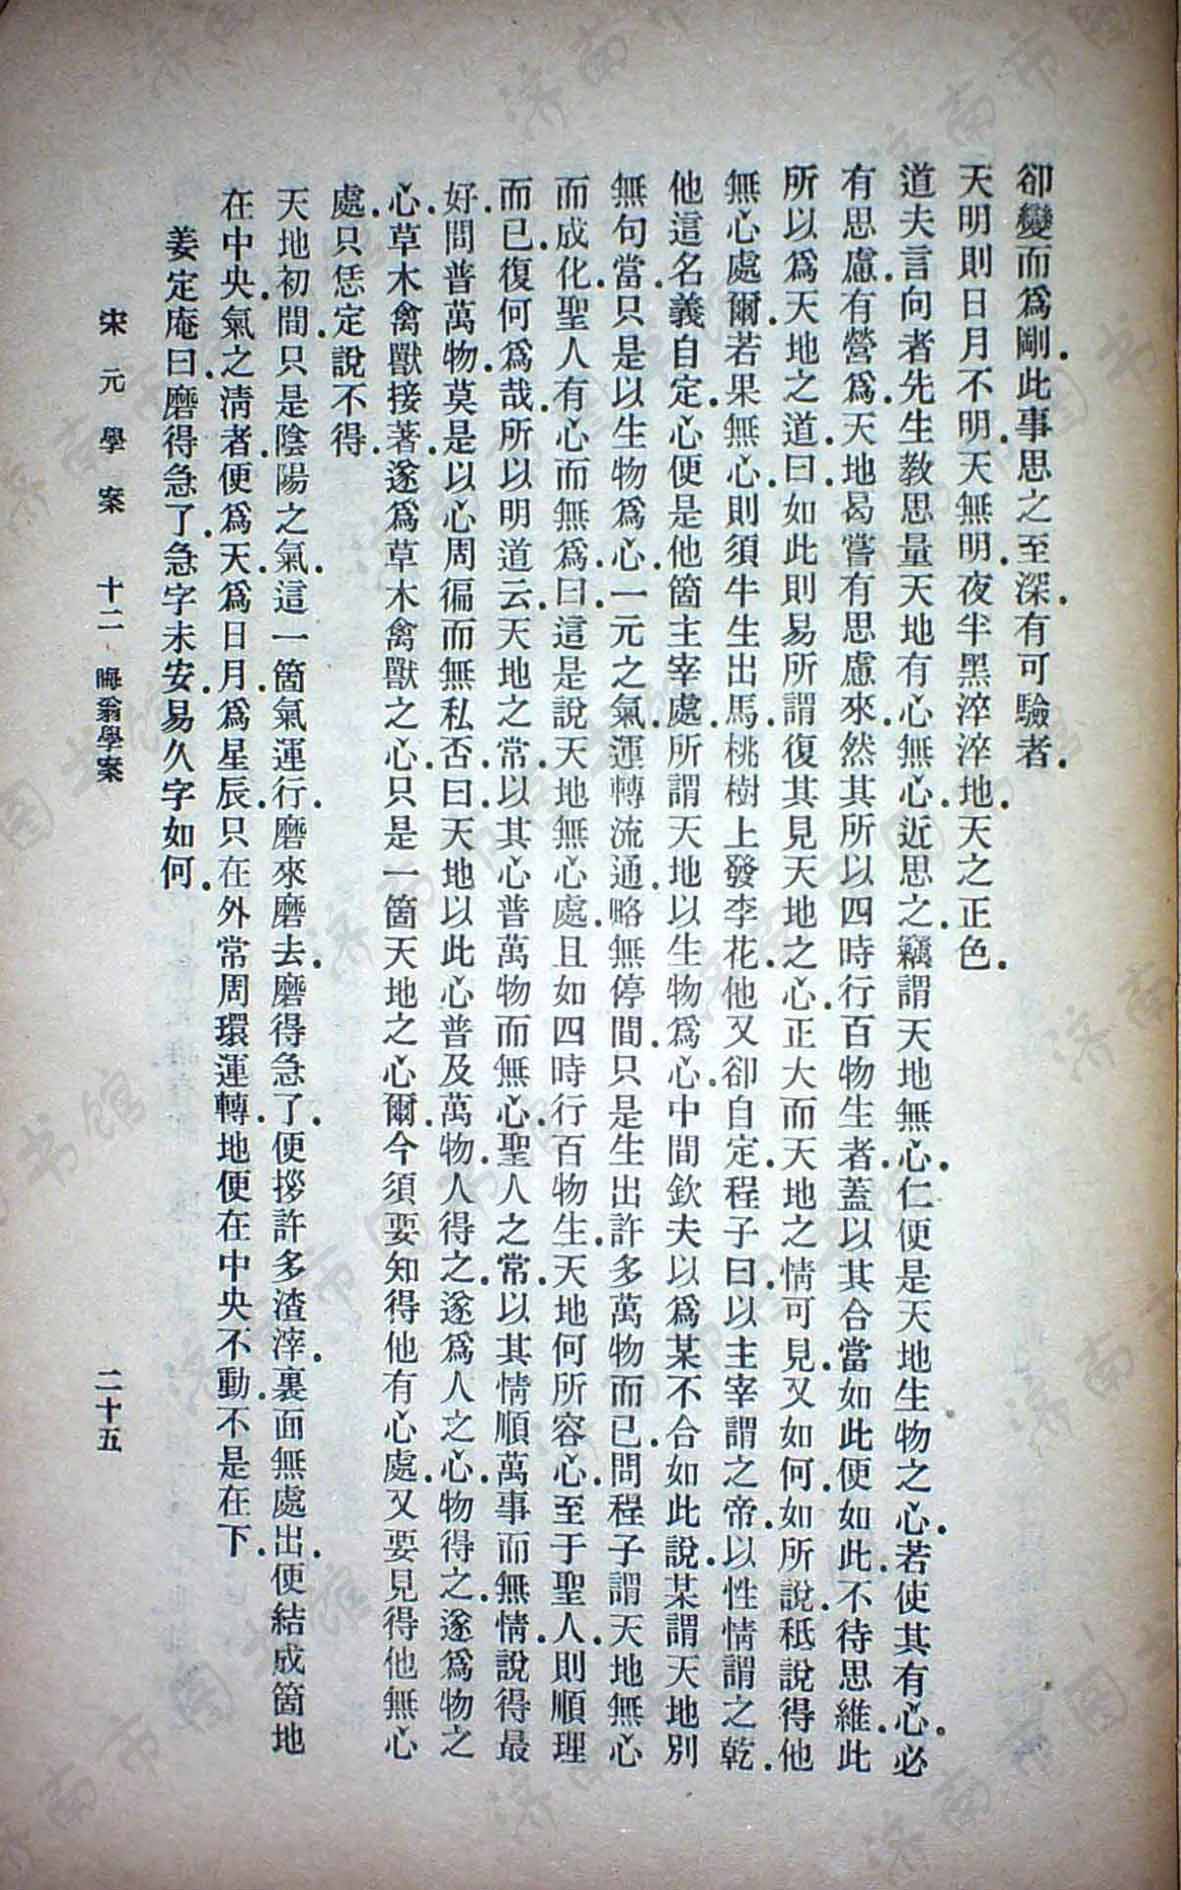 卻變而爲剛.此事思之至深.有可驗者.
天明則日月不明.天無明.夜半黑淬淬地.天之正色.
道夫言向者.先生敎思量天地有心無心.近思之.竊謂天地無心.仁便是天地生物之心.若使其有心.必
有思慮.有營爲.天地曷嘗有思慮來.然其所以四時行.百物生者.蓋以其合當如此便如此.不待思維.此
所以爲天地之道.曰.如此則易所謂復其見天地之心.正大而天地之情可見.又如何.如所說.秪說得他
無心處爾.若果無心.則須牛生出馬.桃樹上發李花.他又卻自定.程子曰.以主宰謂之帝.以性情謂之乾.
他這名義自定.心便是他箇主宰處.所謂天地以生物爲心.中間欽夫以爲某不合如此說.某謂天地別
無句當.只是以生物爲心.一元之氣.運轉流通.略無停間.只是生出許多萬物而已.問程子謂天地無心
而成化.聖人有心而無爲.曰.這是說天地無心處.且如四時行.百物生.天地何所容心.至于聖人.則順理
而已.復何爲哉.所以明道云.天地之常.以其心普萬物而無心.聖人之常.以其情順萬事而無情.說得最
好.問普萬物.莫是以心周徧而無私否.曰.天地以此心普及萬物.人得之.遂爲人之心.物得之.遂爲物之
心.草木禽獸接著.遂爲草木禽獸之心.只是一箇天地之心爾.今須要知得他有心處.又要見得他無心
處.只恁定說不得.
天地初間.只是陰陽之氣.這一箇氣運行.磨來磨去.磨得急了.便拶許多渣滓.裏面無處出.便結成箇地
在中央.氣之淸者.便爲天.爲日月.爲星辰.只在外常周環運轉.地便在中央不動.不是在下.
姜定庵曰.磨得急了.急字未安.易久字如何.
宋元學案 十二 晦翁學案 二十五
济南市图书馆